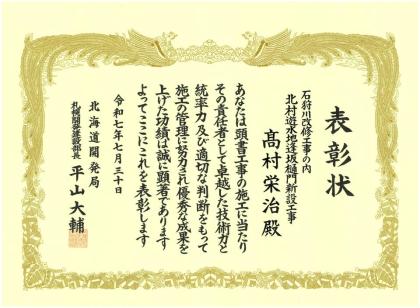 表彰状
石狩川改修工事の内
北村遊水地逢坂樋門新設工事
髙村栄治殿
あなたは頭書工事の施工に当たり
その責任者として卓越した技術力と
統率力及び適切な判断をもって
施工の管理に努力され優秀な成果を
上げた功績は誠に顕著であります
よってここにこれを表彰します
令和七年七月三十日
北海道開発局
札幌開発建設部長 平山大輔